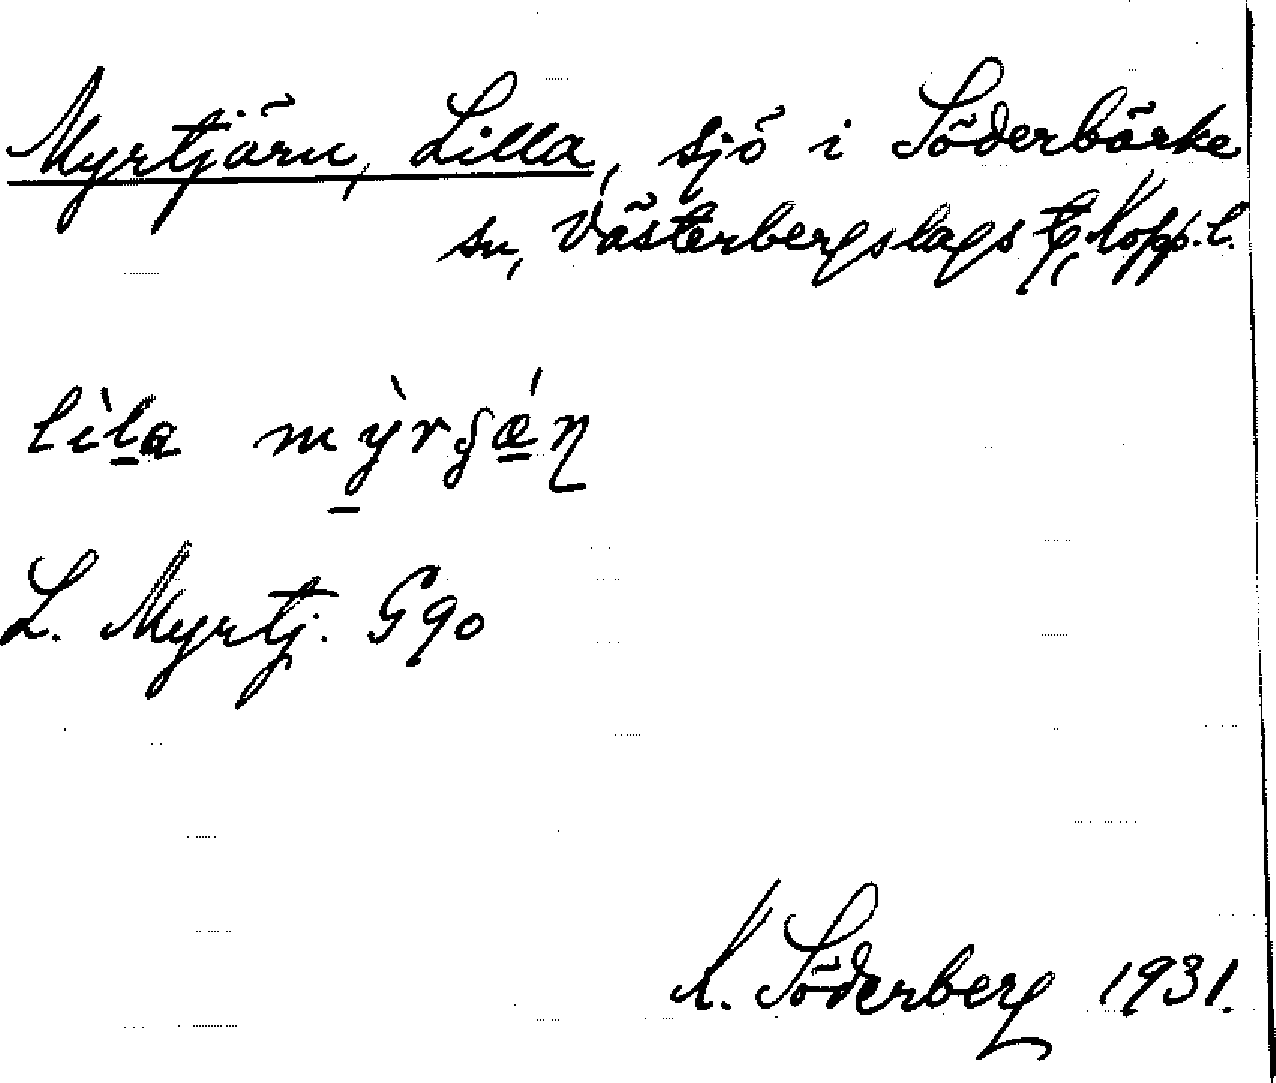 Myrtjärn, Lilla, sjö i Söderbärke
sn, Västerbergslags tg, Kopp. l.
lìla mỳrʃǽɳ
L. Myrtj. G90
K. Söderberg 1931.